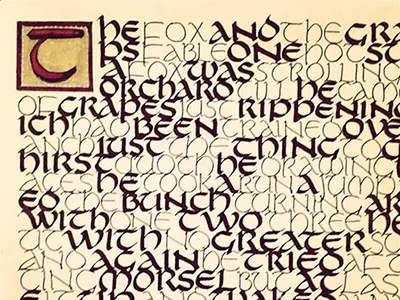 THE FOX AND THE GRA
FABLE ONE HOT
A FOX WAS STROLLING
ORCHARD TILL HE CAM
OF GRAPES JUST RIPPENING
ICH HAD BEEN TRAINED OVE
JUST THE THING
HIRST HE
HE A RUN A
ED BUNCH TURNING AR
WITH ONE TWO THREE
UP WITH GREATER
AGAIN HE TRIED AF
MORSEL AT